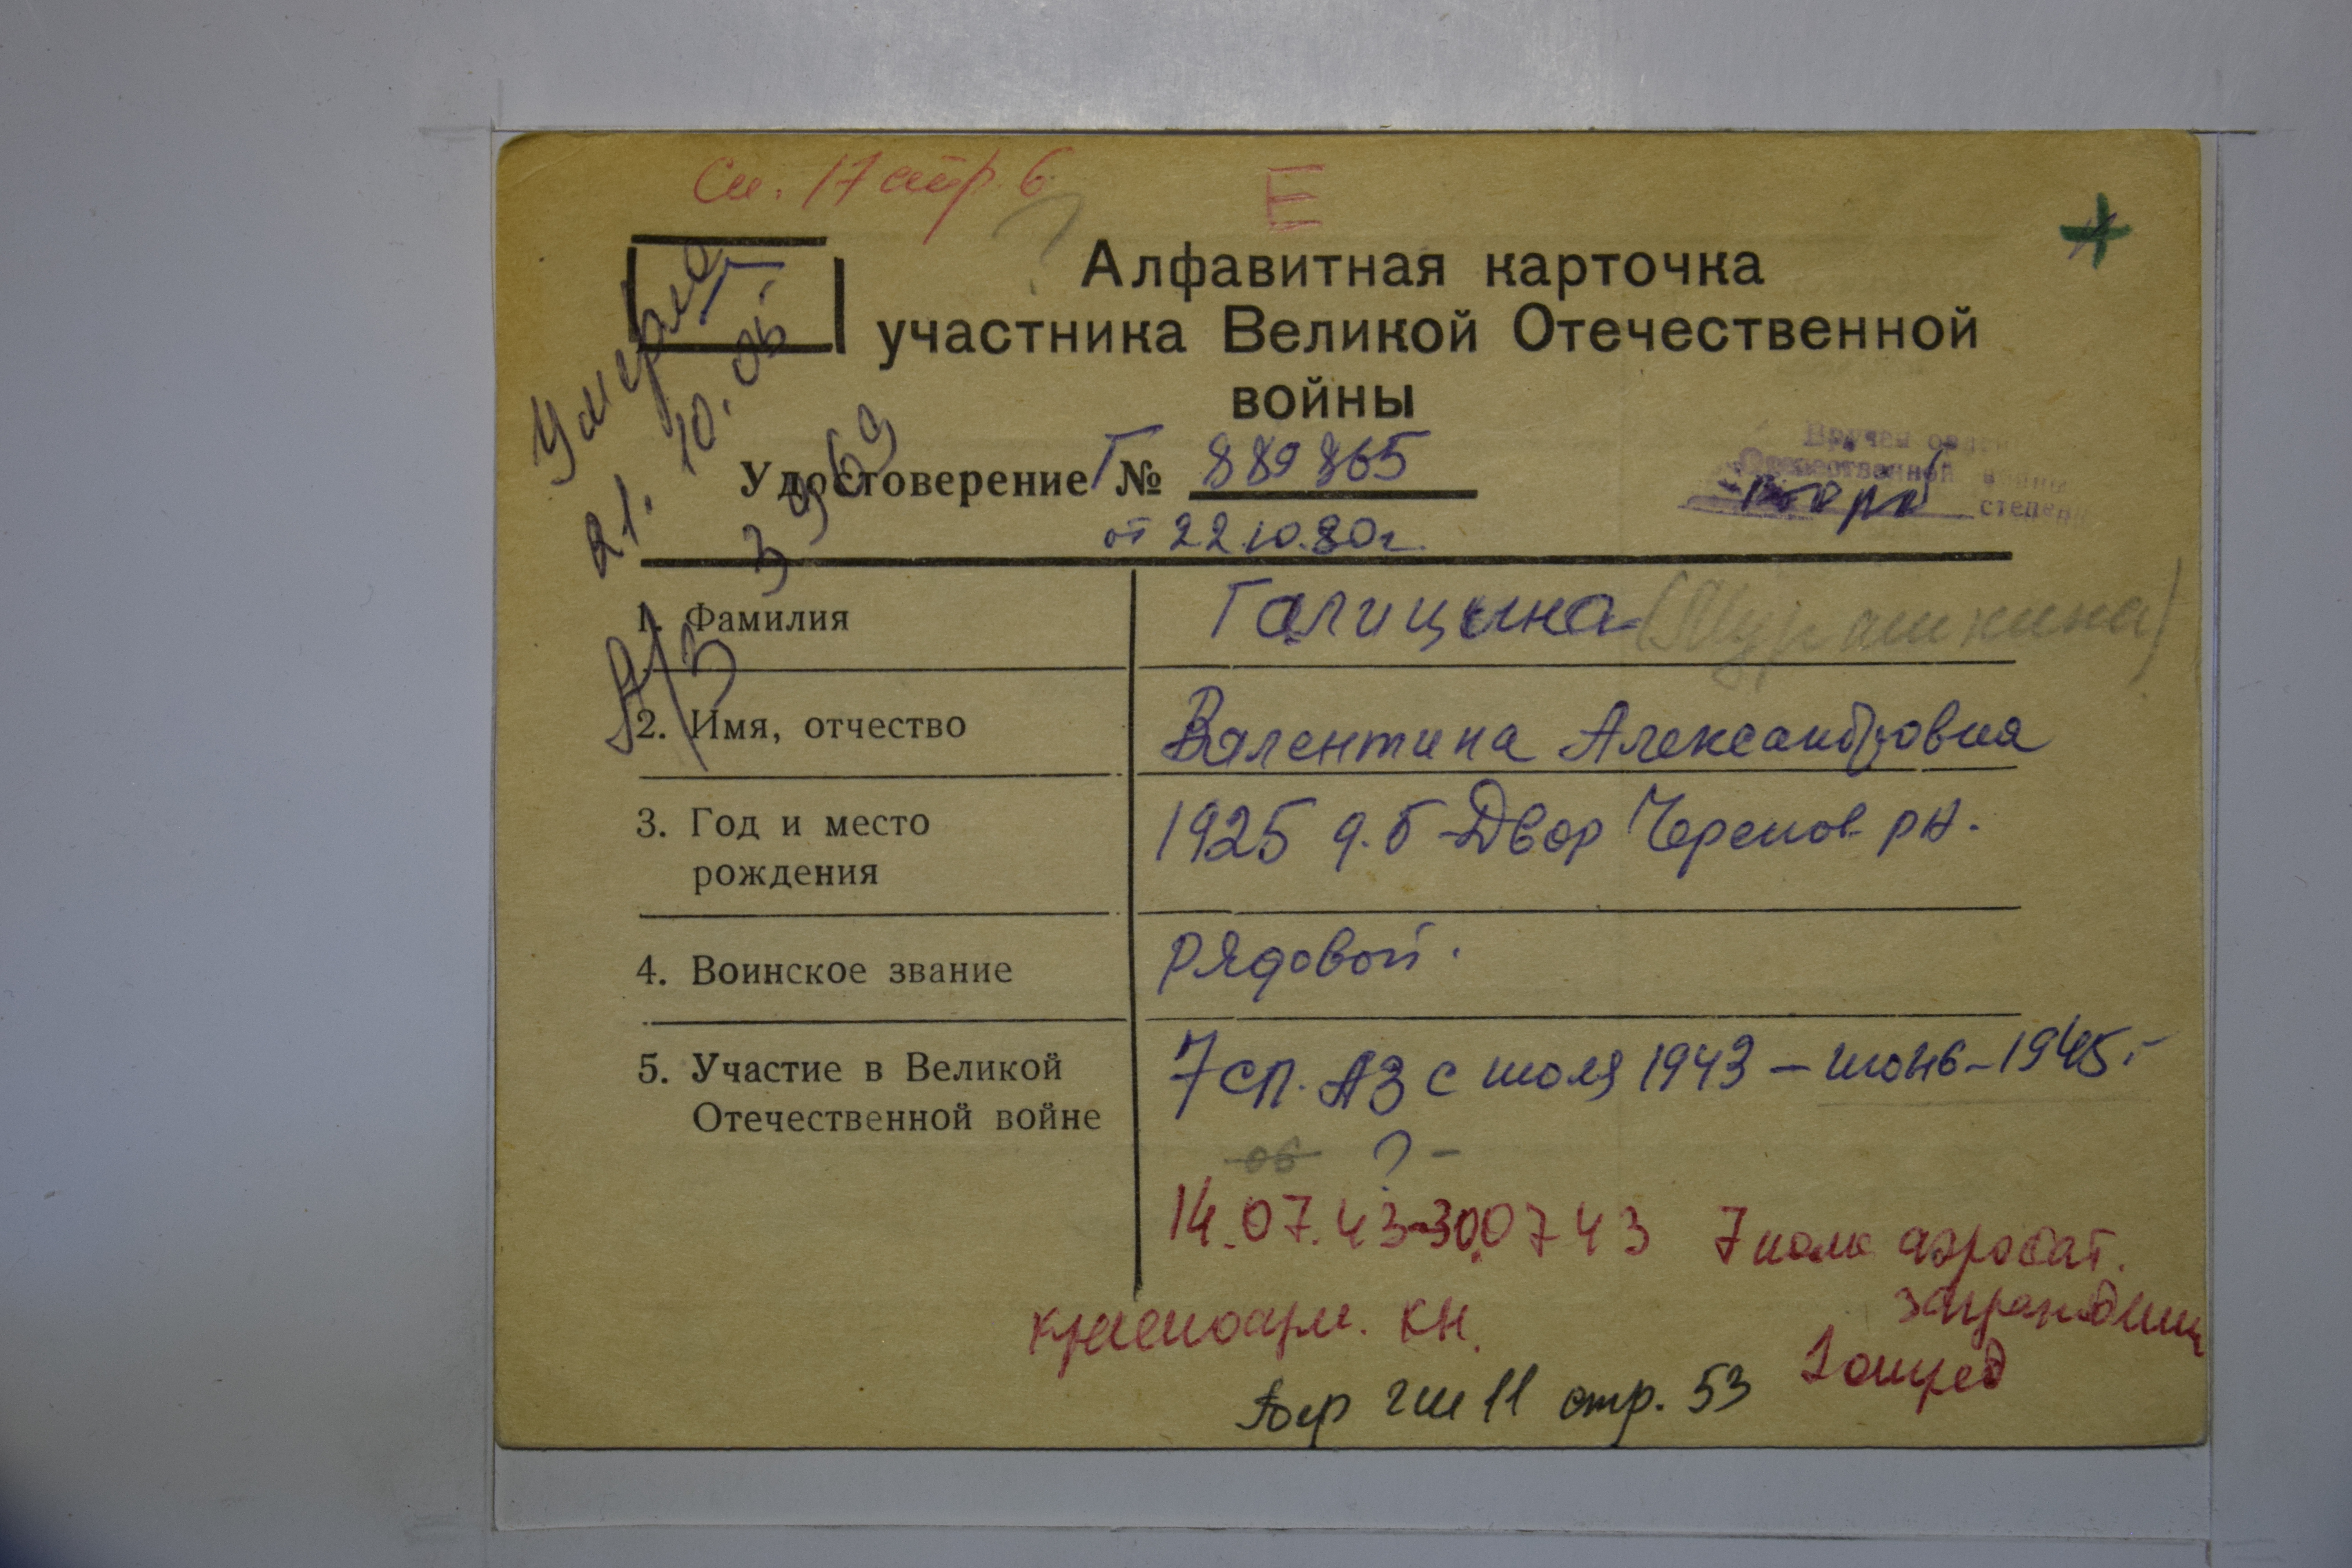 См. 17 стр. 6
Е
Г
Алфавитная карточка
участника Великой Отечественной
войны
Умерла
21. 10. 05.
3969
А/З
Вручен орден
Отечественной войны
втора степени
Удостоверение Г № 889865
от 22.10.80г.
1. Фамилия
Галицина (Мурашкина)
2. Имя, отчество
Валентина Александровна
3. Год и место
рождения
1925 д. Б-Двор Черепов. рн.
4. Воинское звание
рядовой.
5. Участие в Великой
Отечественной войне
7 сп. АЗ с июля 1943 – июнь – 1945.
об ? –
14.07.43-30.07 43 7 полк аэростат.
заграждения
красноарм. кн.
стр. 53